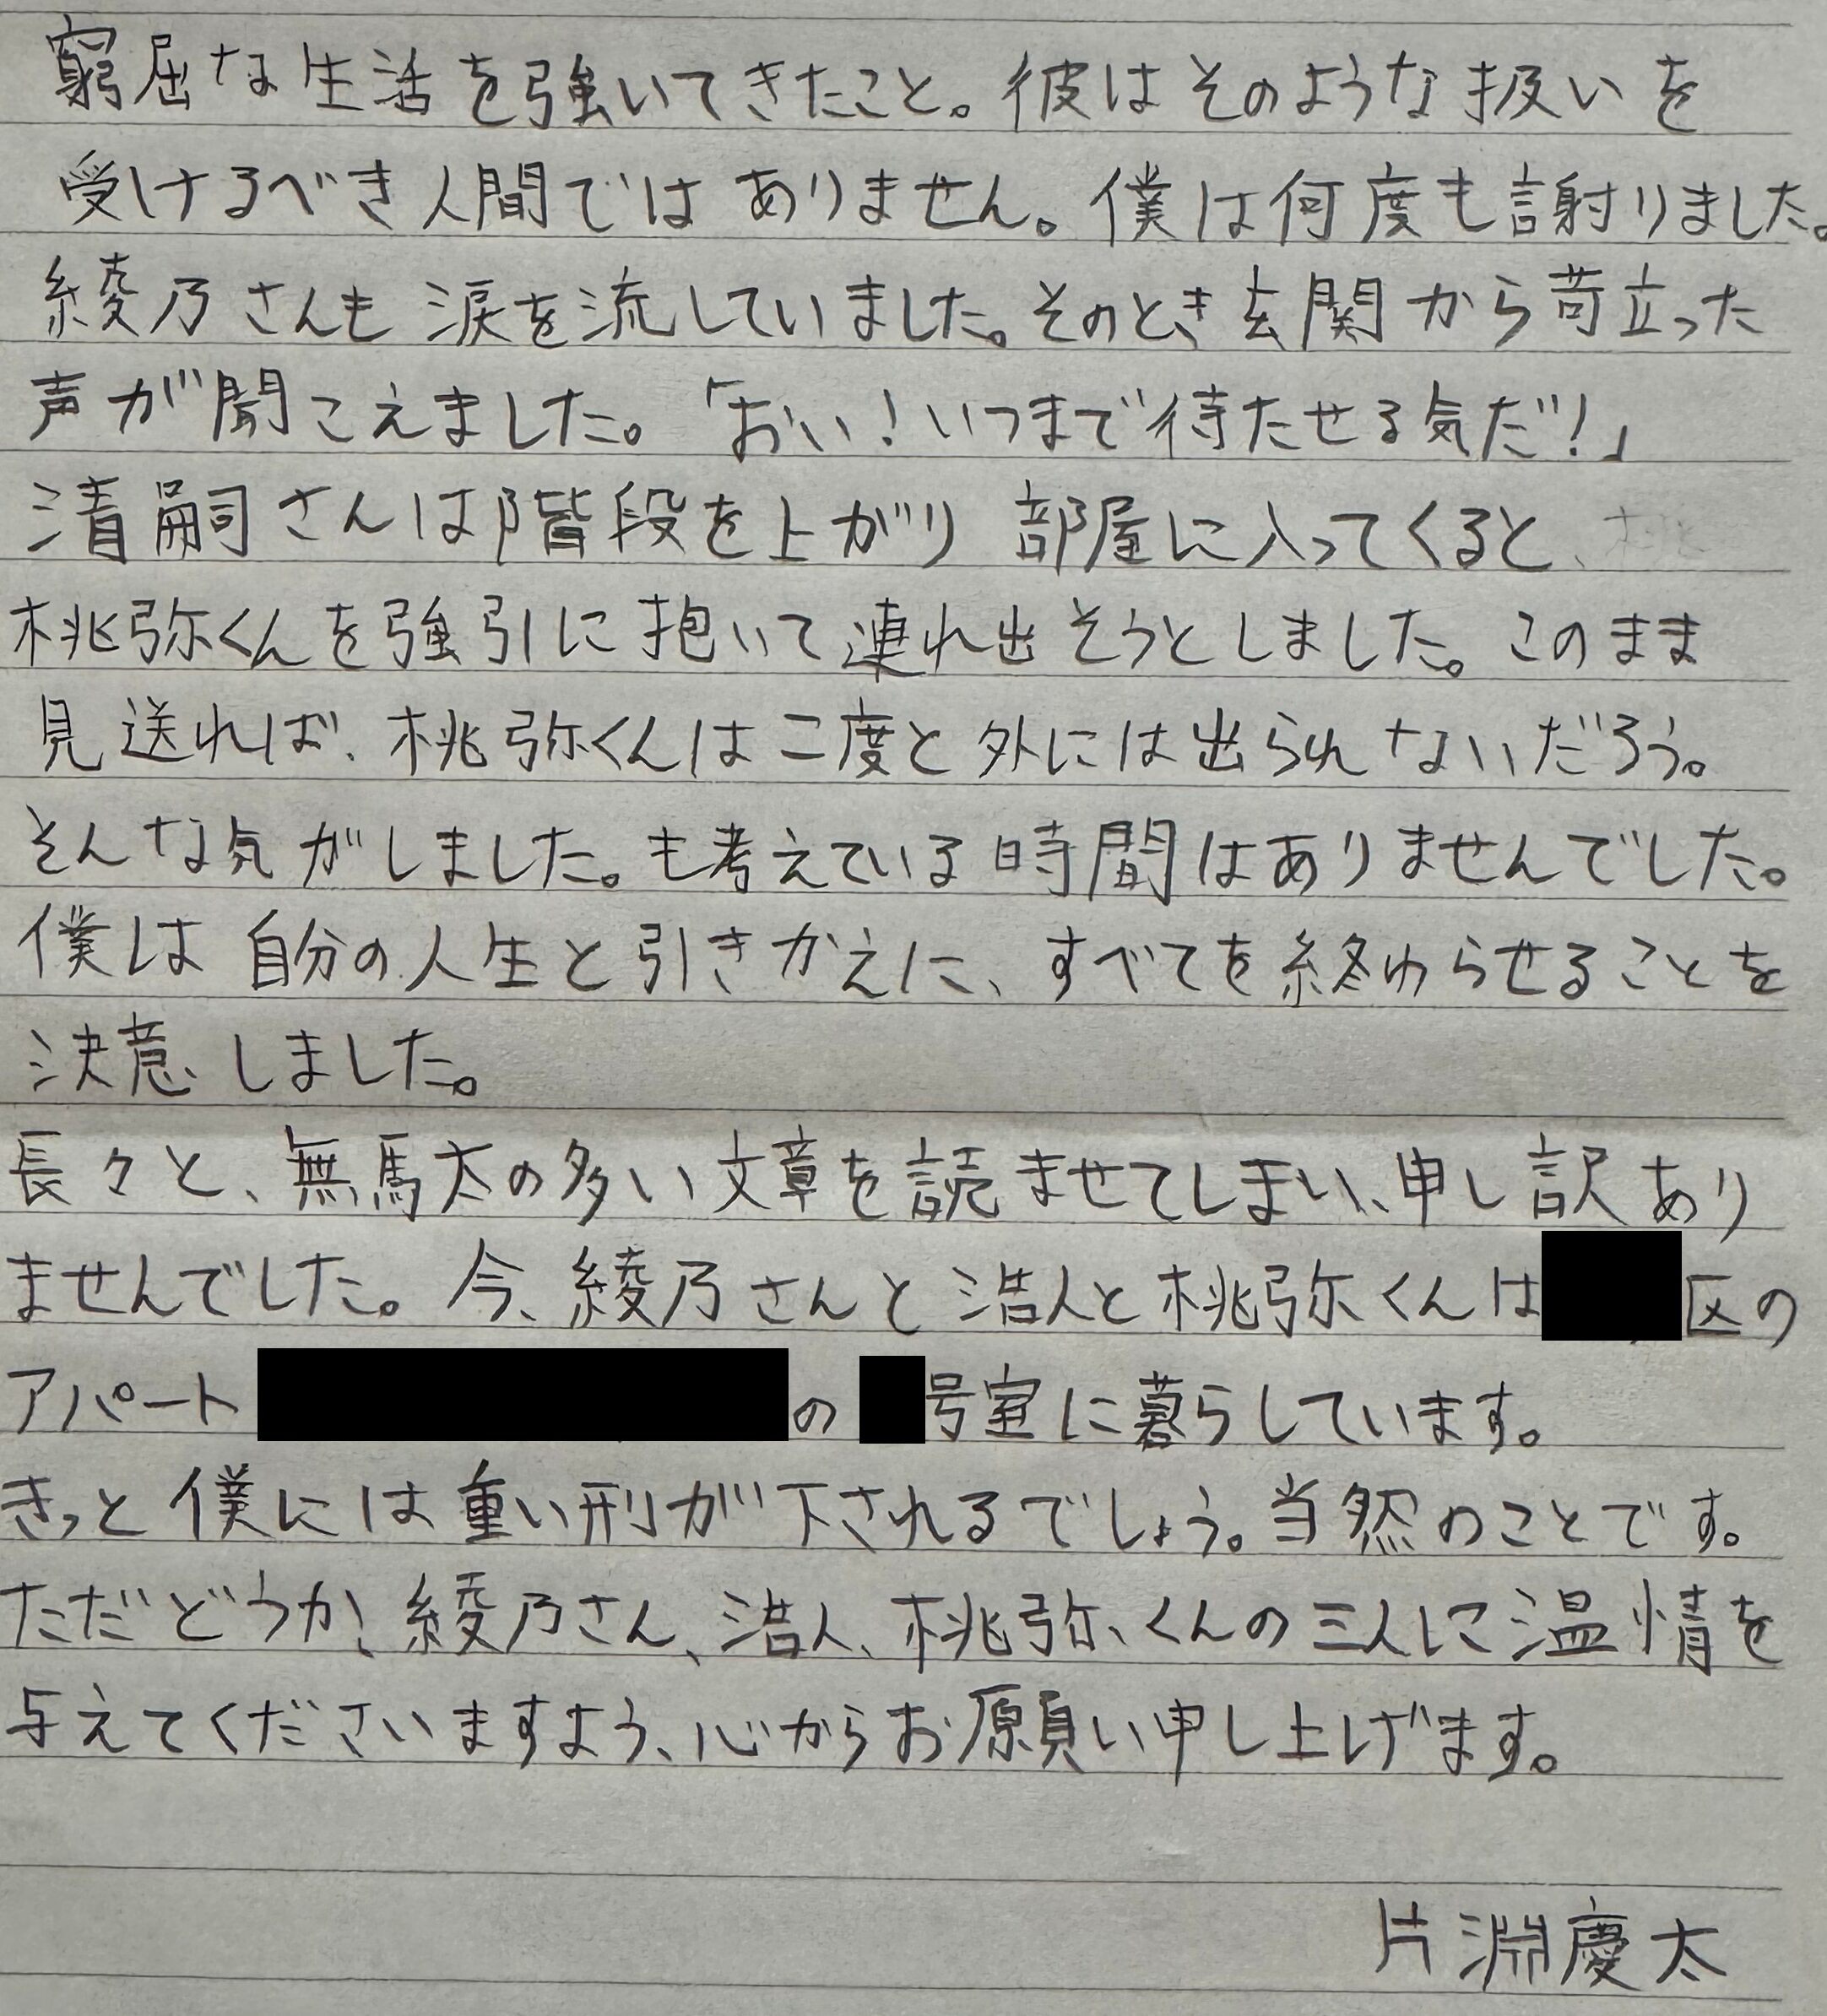 窮屈な生活を強いてきたこと。彼はそのような扱いを
受けるべき人間ではありません。僕は何度も謝りました。
綾乃さんも涙を流していました。そのとき玄関から苛立った
声が聞こえました。「おい！いつまで待たせる気だ！」
清嗣さんは階段を上がり部屋に入ってくると、
桃弥くんを強引に抱いて連れ出そうとしました。このまま
見送れば、桃弥くんは二度と外には出られないだろう。
そんな気がしました。も考えている時間はありませんでした。
僕は自分の人生と引きかえに、すべてを終わらせることを
決意しました。
長々と、無駄の多い文章を読ませてしまい、申し訳あり
ませんでした。今、綾乃さんと浩人と桃弥くんは区の
アパートの号室に暮らしています。
きっと僕には重い刑が下されるでしょう。当然のことです。
ただどうか、綾乃さん、浩人、桃弥くんの三人に温情を
与えてくださいますよう、心からお願い申し上げます。
片淵慶太